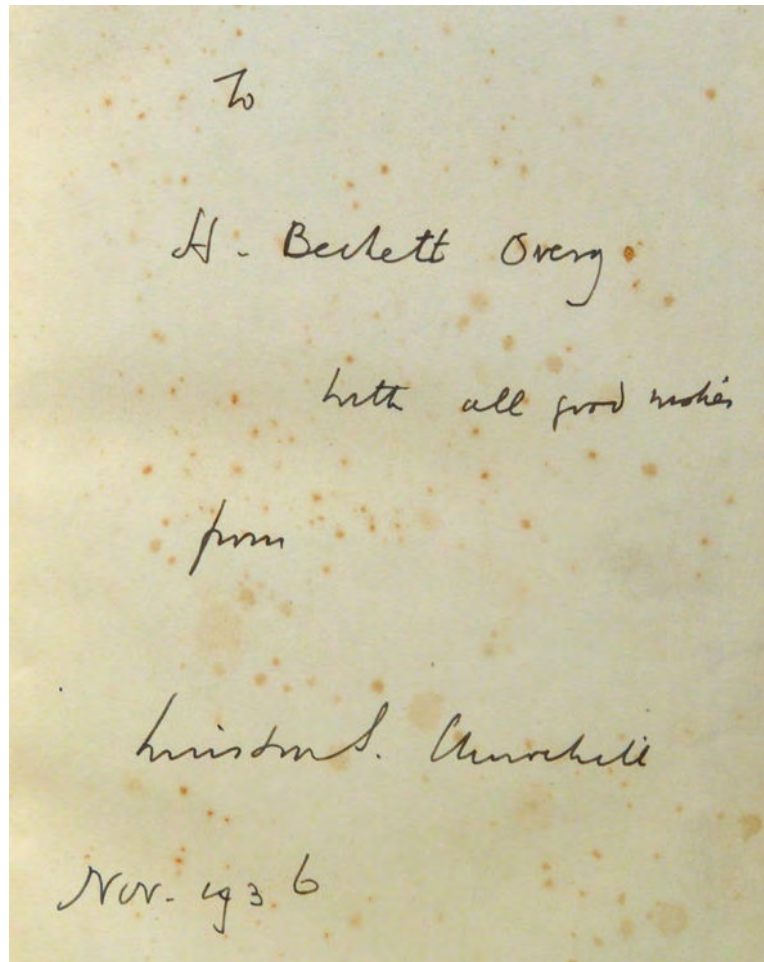 To
H. Beckett Overy
with all good wishes
from
Winston S. Churchill
Nov. 1936